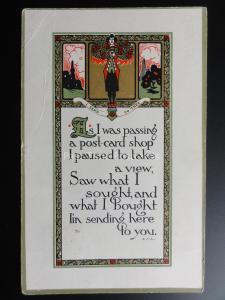 As I was passing
a post-card shop
I paused to take
a view,
Saw what I
sought, and
what I bought
I'm sending here
to you.